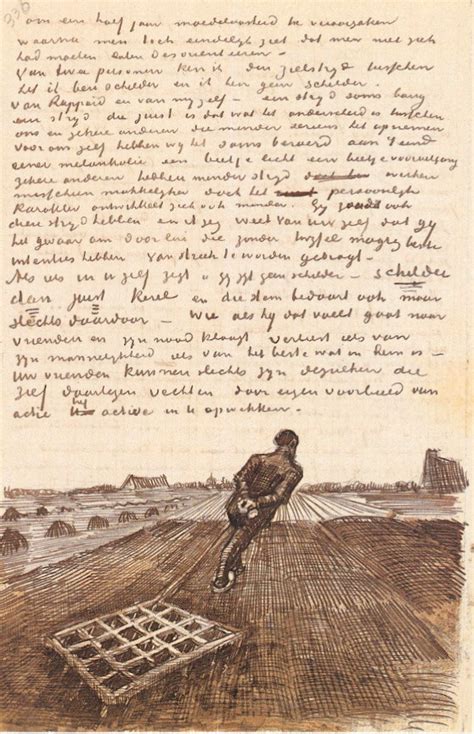 336
om een half jaar moedeloosheid te veroorzaken
waarna men toch eindelijk ziet dat men niet zich
had moeten laten desorienteeren. –
Van twee personen ken ik den zielstryd tusschen
het ik ben schilder en ik ben geen schilder.
Van Rappard en van myzelf – een stryd soms bang
een stryd die juist is dat wat het onderscheid is tusschen
ons en zekere anderen die minder serieus het opnemen
voor ons zelf hebben wy 't soms beroerd aan 't eind
eener melancholie een beetje licht een beetje vooruitgang
zekere anderen hebben minder stryd werken
misschien makkelyker doch het persoonlyk
karakter ontwikkelt zich ook minder. Gy zoudt ook
dien stryd hebben en ik zeg weet van uw zelf dat gy
het gevaar om door lui die zonder twyfel beste
intenties hebben van streek te worden gebragt –
Als iets in U zelf zegt gy zyt geen schilder – schilder
dan juist kerel en die stem bedaart ook maar
slechts daardoor – Wie als hy dat voelt gaat naar
vrienden en zyn nood klaagt verliest iets van
zyn mannelykheid iets van het beste wat in hem is –
Uw vrienden kunnen slechts zyn degenen die
zelf daartegen vechten door eigen voorbeeld van
actie het active in U opwekken.